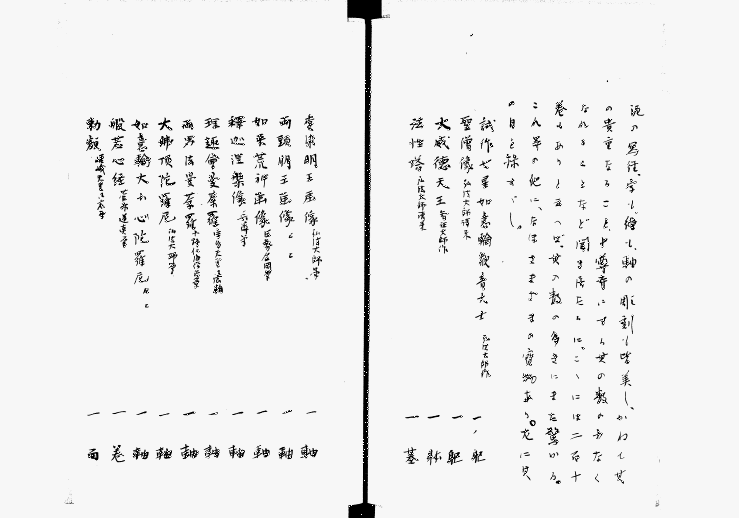 泥の写経、字も、繪も、軸の彫刻も皆美し。かねて其
の貴重なること、中尊寺にすら其の数の少なく
なれることなど聞き居たるに、こゝには二百十
巻もありと云へば、其の数の多きにまた驚かる。
これ等の他に、なほさまざまの寶物あり。左に其
の目を録すべし。
試作七星如意輪観音大士 弘法大師作 一軀
聖僧像 弘法大師請来 一軀
大威德天王 智証大師作 一躰
法性塔 弘法大師請来 一基
愛染明王画像 弘法大師筆 一軸
両頭明王画像 仝 仝 一軸
如来荒神画像 巨勢金岡筆 一軸
釋迦涅槃像 一軸
理趣會曼荼羅 一軸
両界法曼荼羅 一軸
大佛頂陀羅尼 弘法大師筆 一軸
如意輪大小心陀羅尼 仝 仝 一軸
般若心経 菅原道真筆 一巻
勅額 嵯峨天皇 一面